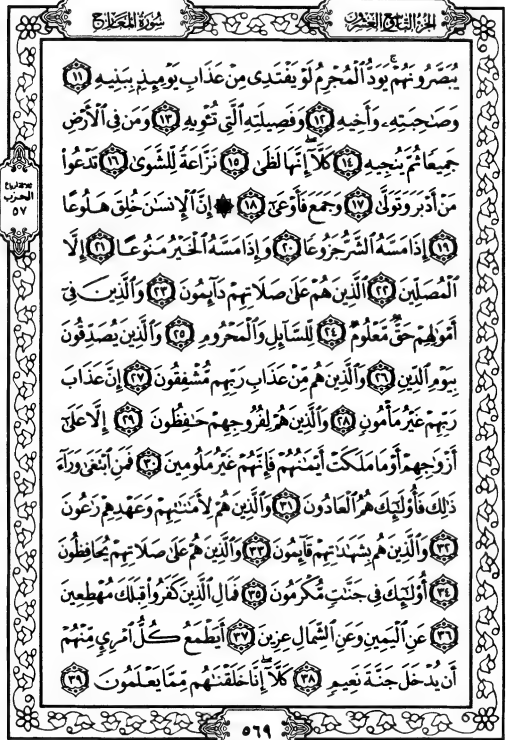 سُورَةُ المَعَارِج
الجُزءُ التَّاسِعُ وَالعِشْرُونَ
يُبَصَّرُونَهُمْ يَوَدُّ الْمُجْرِمُ لَوْ يَفْتَدِى مِنْ عَذَابِ يَوْمِئِذٍ بِبَنِيهِ ١١
وَصَٰحِبَتِهِۦ وَأَخِيهِ ١٢ وَفَصِيلَتِهِ الَّتِى تُـْٔوِيهِ ١٣ وَمَن فِى الْأَرْضِ
جَمِيعًا ثُمَّ يُنجِيهِ ١٤ كَلَّآ إِنَّهَا لَظَىٰ ١٥ نَزَّاعَةً لِّلشَّوَىٰ ١٦ تَدْعُوا۟
مَنْ أَدْبَرَ وَتَوَلَّىٰ ١٧ وَجَمَعَ فَأَوْعَىٰٓ ١٨ ۞ إِنَّ الْإِنسَٰنَ خُلِقَ هَلُوعًا
١٩ إِذَا مَسَّهُ الشَّرُّ جَزُوعًا ٢٠ وَإِذَا مَسَّهُ الْخَيْرُ مَنُوعًا ٢١ إِلَّا
الْمُصَلِّينَ ٢٢ الَّذِينَ هُمْ عَلَىٰ صَلَاتِهِمْ دَآئِمُونَ ٢٣ وَالَّذِينَ فِىٓ
أَمْوَٰلِهِمْ حَقٌّ مَّعْلُومٌ ٢٤ لِّلسَّآئِلِ وَالْمَحْرُومِ ٢٥ وَالَّذِينَ يُصَدِّقُونَ
بِيَوْمِ الدِّينِ ٢٦ وَالَّذِينَ هُم مِّنْ عَذَابِ رَبِّهِم مُّشْفِقُونَ ٢٧ إِنَّ عَذَابَ
رَبِّهِمْ غَيْرُ مَأْمُونٍ ٢٨ وَالَّذِينَ هُمْ لِفُرُوجِهِمْ حَٰفِظُونَ ٢٩ إِلَّا عَلَىٰٓ
أَزْوَٰجِهِمْ أَوْ مَا مَلَكَتْ أَيْمَٰنُهُمْ فَإِنَّهُمْ غَيْرُ مَلُومِينَ ٣٠ فَمَنِ ابْتَغَىٰ وَرَآءَ
ذَٰلِكَ فَأُو۟لَٰٓئِكَ هُمُ الْعَادُونَ ٣١ وَالَّذِينَ هُمْ لِأَمَٰنَٰتِهِمْ وَعَهْدِهِمْ رَٰعُونَ
٣٢ وَالَّذِينَ هُم بِشَهَٰدَٰتِهِمْ قَآئِمُونَ ٣٣ وَالَّذِينَ هُمْ عَلَىٰ صَلَاتِهِمْ يُحَافِظُونَ
٣٤ أُو۟لَٰٓئِكَ فِى جَنَّٰتٍ مُّكْرَمُونَ ٣٥ فَمَالِ الَّذِينَ كَفَرُوا۟ قِبَلَكَ مُهْطِعِينَ
٣٦ عَنِ الْيَمِينِ وَعَنِ الشِّمَالِ عِزِينَ ٣٧ أَيَطْمَعُ كُلُّ امْرِئٍ مِّنْهُمْ
أَن يُدْخَلَ جَنَّةَ نَعِيمٍ ٣٨ كَلَّآ إِنَّا خَلَقْنَٰهُم مِّمَّا يَعْلَمُونَ ٣٩
الحزب
٥٧
٥٦٩